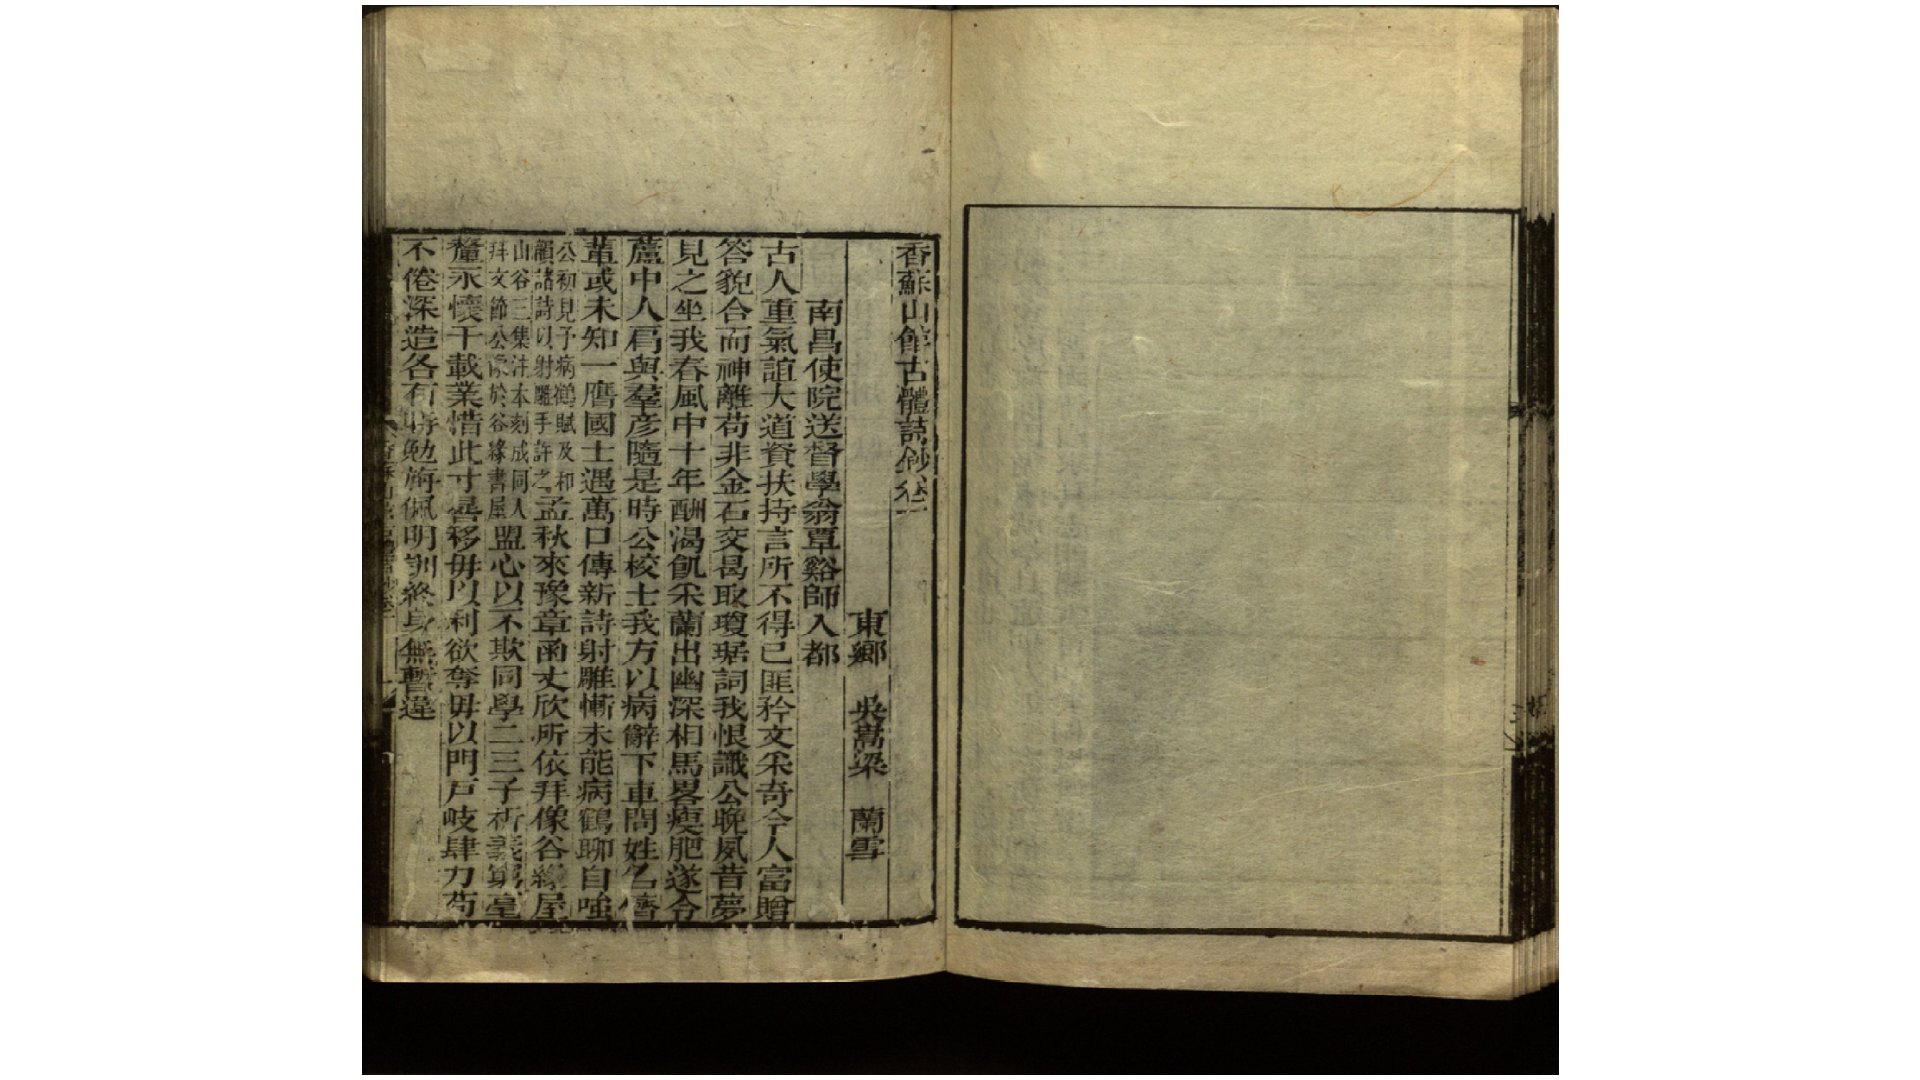 香蘇山館古體詩鈔卷一
東鄉 吳嵩梁 蘭雪
南昌使院送督學翁覃谿師入都
古人重氣誼大道資扶持言所不得已匪矜文采奇今人富贈
答貌合而神離苟非金石交曷取瓊琚詞我恨識公晚夙昔夢
見之坐我春風中十年酬渴飢采蘭出幽深相馬畧瘦肥遂令
蘆中人肩與羣彥隨是時公校士我方以病辭下車問姓名儕
輩或未知一膺國士遇萬口傳新詩射雕慚未能病鶴聊自強
公初見予病鶴賦及和
韻諸詩以射雕手許之
孟秋來豫章函丈欣所依拜像谷緣屋
山谷三集注本刻成同人
拜文節公像於谷緣書屋
盟心以不欺同學二三子析義窮毫
釐永懷千載業惜此寸晷移毋以利欲奪毋以門戶岐肆力苟
不倦深造各有時勉旃佩明訓終身無暫違